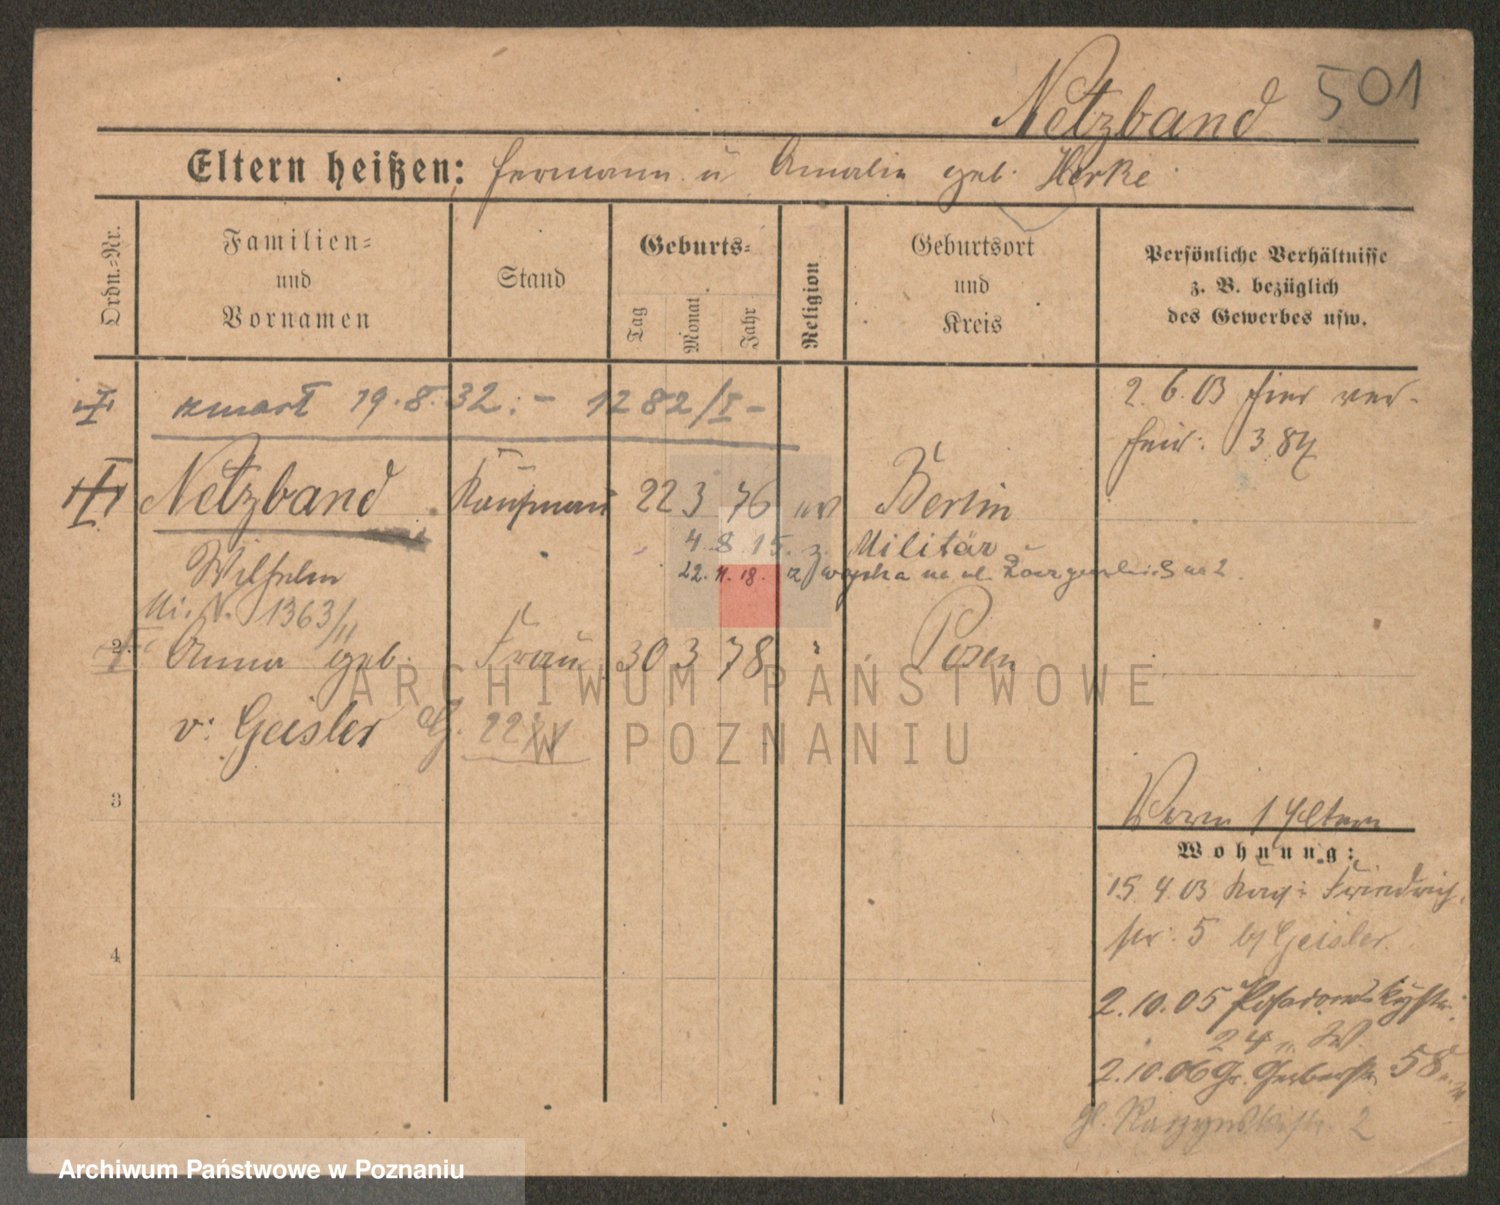 Netzband 501
Eltern heißen: Hermann u Amalie geb. Herke
Ordn.-Nr.
Familien- und Vornamen
Stand
Geburts-
Tag
Monat
Jahr
Religion
Geburtsort und Kreis
Persönliche Verhältnisse z. B. bezüglich des Gewerbes usw.
zmarł 19.8.32. - 1282/I -
2.6.03 hier ver-
heir: 3 87
Netzband Kaufmann 22 3 76 ev Berlin
4.8.15. z. Militär
Wilhelm
22.11.18. z wojska
1363/11
2 Anna geb. Frau 30 3 78 " Posen
v: Geisler
3
4
Wohnung:
15.4.03 Friedrich
str. 5 b/ Geisler
2.10.05
24
2.10.06 Gr. Gerberstr 58
2
ARCHIWUM PAŃSTWOWE
W POZNANIU
Archiwum Państwowe w Poznaniu